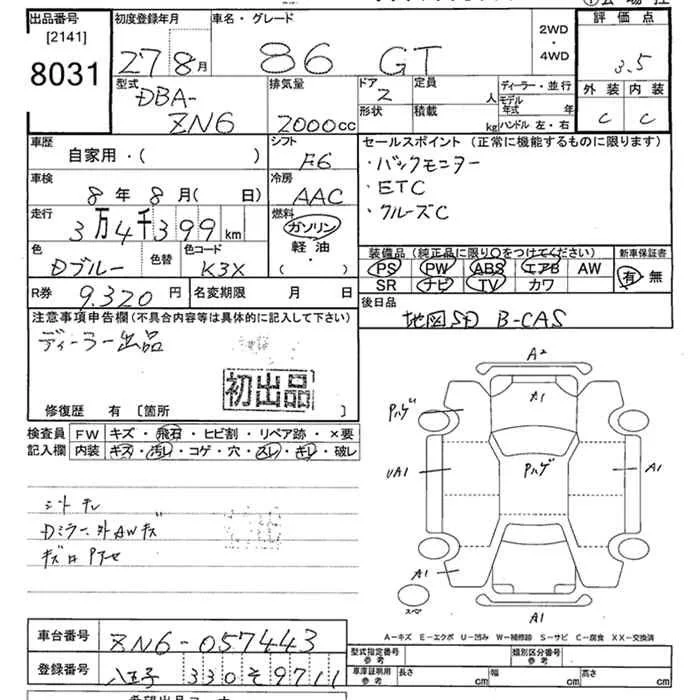 出品番号
[2141]
8031
初度登録年月
27 8月
車名・グレード
86 GT
2WD
・
4WD
評価点
3.5
外装 内装
C C
型式
DBA-
ZN6
排気量
2000cc
ドア
2
形状
定員
人
積載
kg
ディーラー・並行
モデル
年式 年
ハンドル 左・右
車歴
自家用・( )
シフト
F6
車検
8年 8月( 日)
冷房
AAC
走行
3万4千399km
燃料
ガソリン
軽油
・( )
色
Dブルー
色替
色コード
K3X
セールスポイント (正常に機能するものに限ります)
・バックモニター
・ETC
・クルーズC
装備品 (純正品に限り○をつけてください)
PS PW ABS エアB AW
SR ナビ TV カワ
新車保証書
有 無
R券 9.320円
名変期限 月 日
後日品
地図SD B-CAS
注意事項申告欄(不具合内容等は具体的に記入して下さい)
ディーラー出品
初出品
修復歴 有 [箇所 ]
検査員
記入欄
FW キズ・飛石・ヒビ割・リペア跡・×要
内装 キズ・汚レ・コゲ・穴・スレ・キレ・破レ
Dミラー、外AWキズ
A2
A1
Pハゲ
UA1
Pハゲ
A1
A1
スペア
A1
A-キズ E-エクボ U-凹み W-補修跡 S-サビ C-腐食 XX-交換済
車台番号
ZN6-057443
登録番号
八王子 330 そ 9711
型式指定番号
参考
類別区分番号
参考
車庫証明用
参考
長さ cm
幅 cm
高さ cm